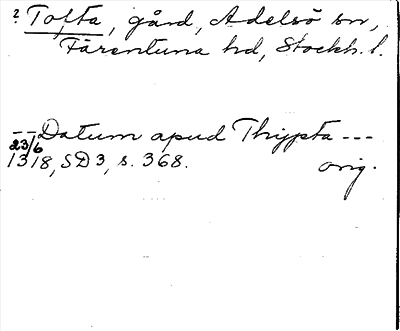 ? Tofta, gård, Adelsö sn,
Färentuna hd, Stockh. l.
-- Datum apud Thypta ---
23/6
1318, SD 3, s. 368.
orig.